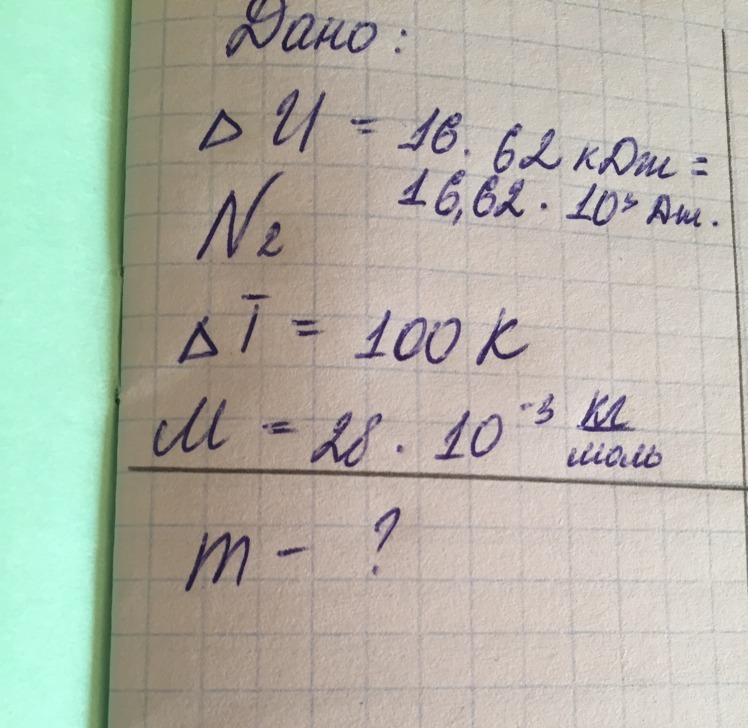 Дано:
ΔU = 16.62 кДж =
16,62 · 10³ Дж.
N₂
ΔT = 100 К
M = 28 · 10⁻³ кг/моль
m - ?